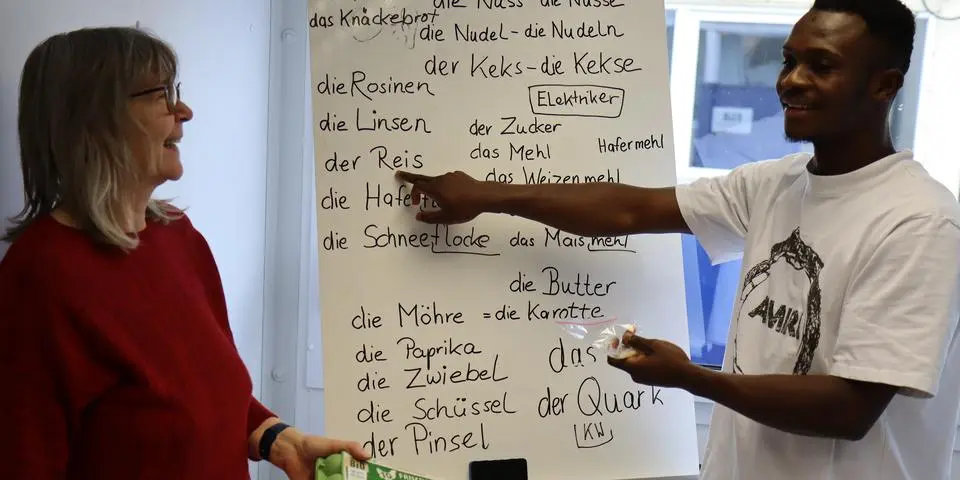 das Knäckebrot
die Nuss die Nüsse
die Nudel - die Nudeln
der Keks - die Kekse
die Rosinen
Elektriker
die Linsen
der Zucker
der Reis
das Mehl
Hafermehl
das Weizenmehl
die
die Schneeflocke
das Maismehl
die Butter
die Möhre = die Karotte
die Paprika
das
die Zwiebel
die Schüssel
der Quark
KW
der Pinsel
AMIRI
BIO